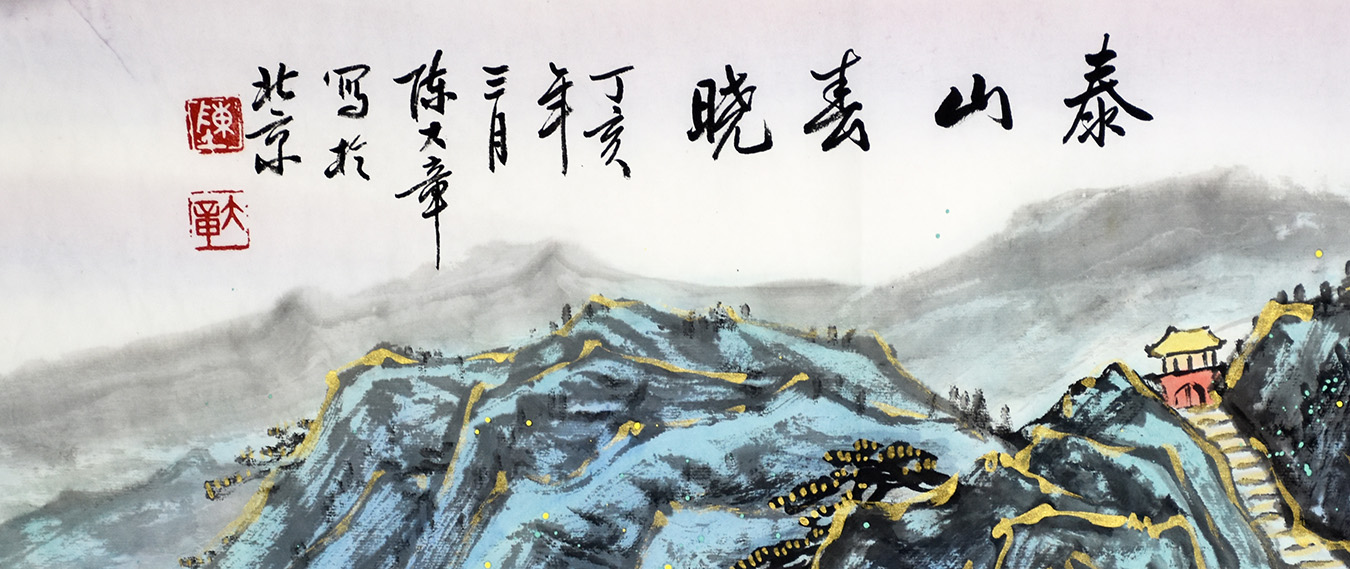 泰山春晓
丁亥
年
三月
陈大章
写於
北京
陳
大章